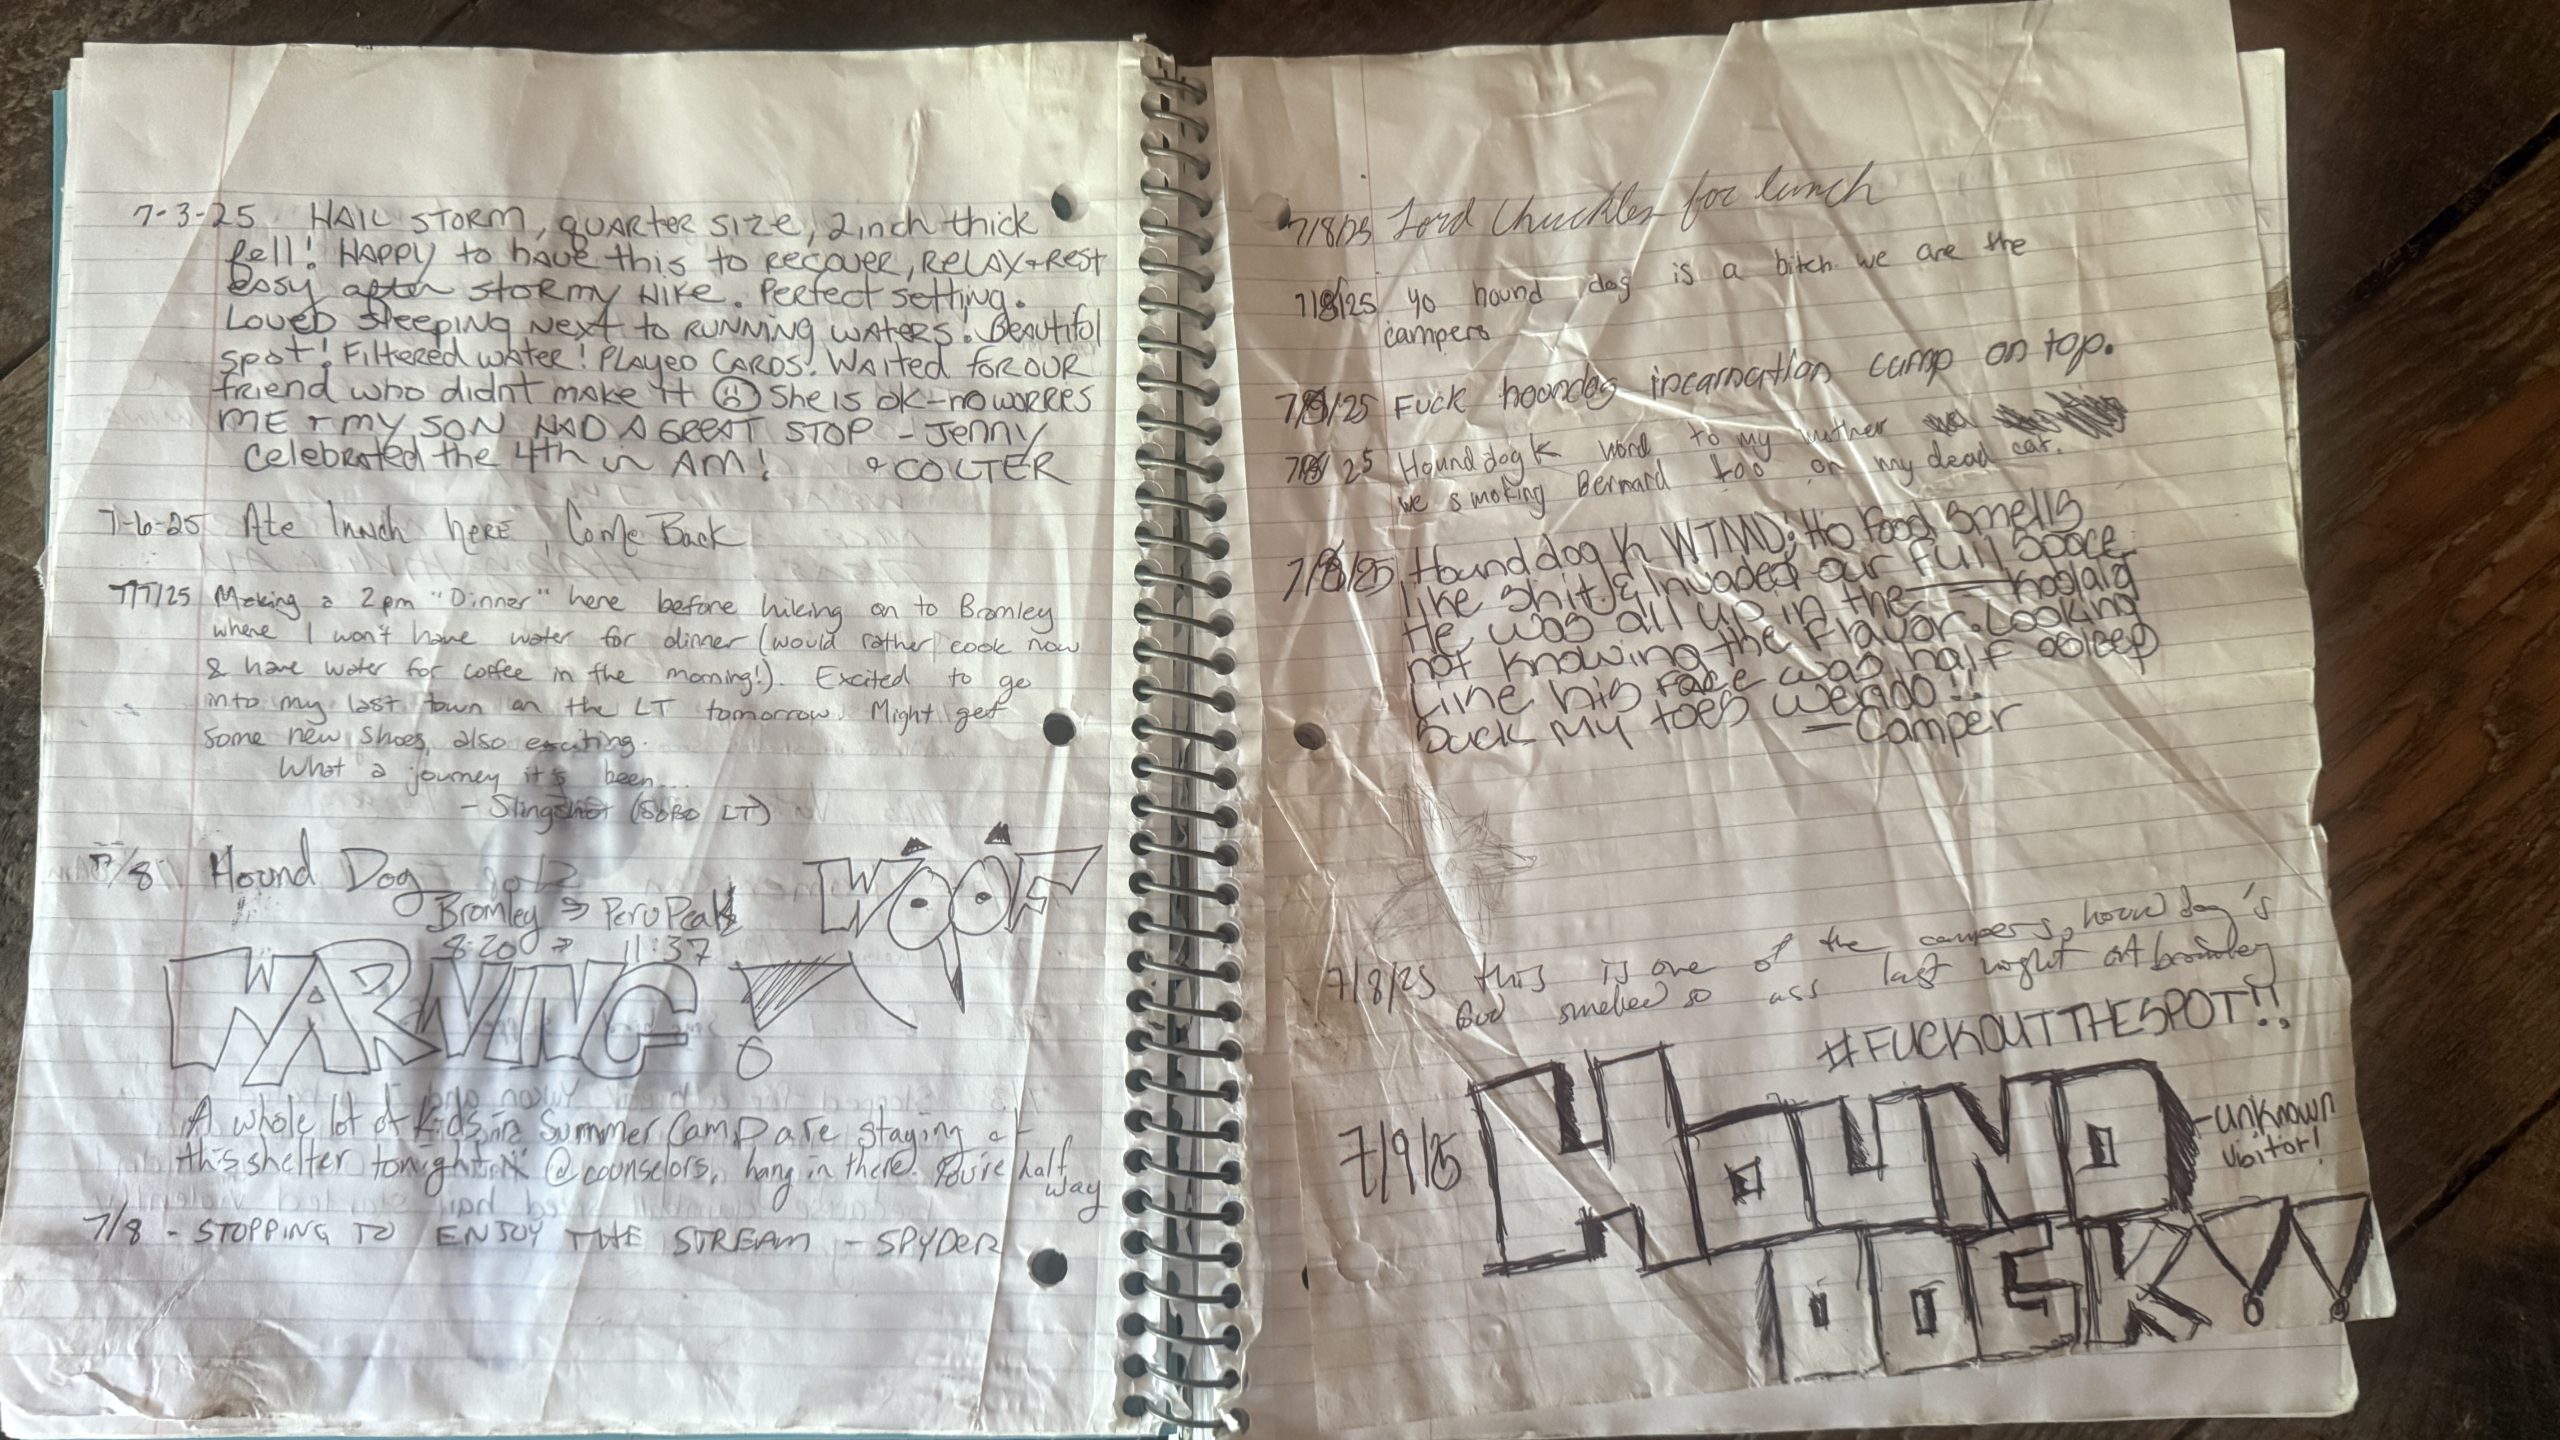 7-3-25 HAIL STORM, QUARTER SIZE, 2inch thick
fell! HAPPY to have this to RECOVER, RELAX + REST
easy after STORMY HIKE. Perfect setting.
LOVED SLEEPING NEXT to RUNNING WATERS. Beautiful
spot! Filtered water! PLAYED CARDS! WAITED FOR OUR
friend who didnt make it ☹ She is ok - no WORRIES
ME + MY SON HAD A GREAT STOP - JENNY
Celebrated the 4th in AM! & COLTER
7-6-25 Ate lunch here, Come Back
7/7/25 Making a 2pm "Dinner" here before hiking on to Bromley
where I won't have water for dinner (would rather cook now
& have water for coffee in the morning!). Excited to go
into my last town on the LT tomorrow. Might get
some new shoes, also exciting.
What a journey it's been....
- Slingshot (SOBO LT)
7/8 Hound Dog
Bromley → Peru Peak
8:20 → 11:37
WOOF
WARNING
A whole lot of kids in Summer Camp are staying at
this shelter tonight @counselors, hang in there. You're half
way
7/8 - STOPPING TO ENJOY THE STREAM - SPYDER
7/8/25 Lord Chuckles for lunch
7/8/25 yo hound dog is a bitch we are the
campers
7/8/25 Fuck houndog incarnation camp on top.
7/8/25 Hound dog K word to my muther
we smoking Bernard too on my dead cat.
7/8/25 Hound dog K WTMD; Ho Food smells
like shit & Invaded our Full Space
He was all up in the Koolaid
not knowing the Flavor. Looking
Like his face was half asleep
Suck my toes weirdo!!
- Camper
7/8/25 this is one of the campers, hound dog's
God smelled so ass last night at bromley
#FUCKOUTTHESPOT!!
7/9/25 HOUND
DOGK!!
- unknown
visitor!